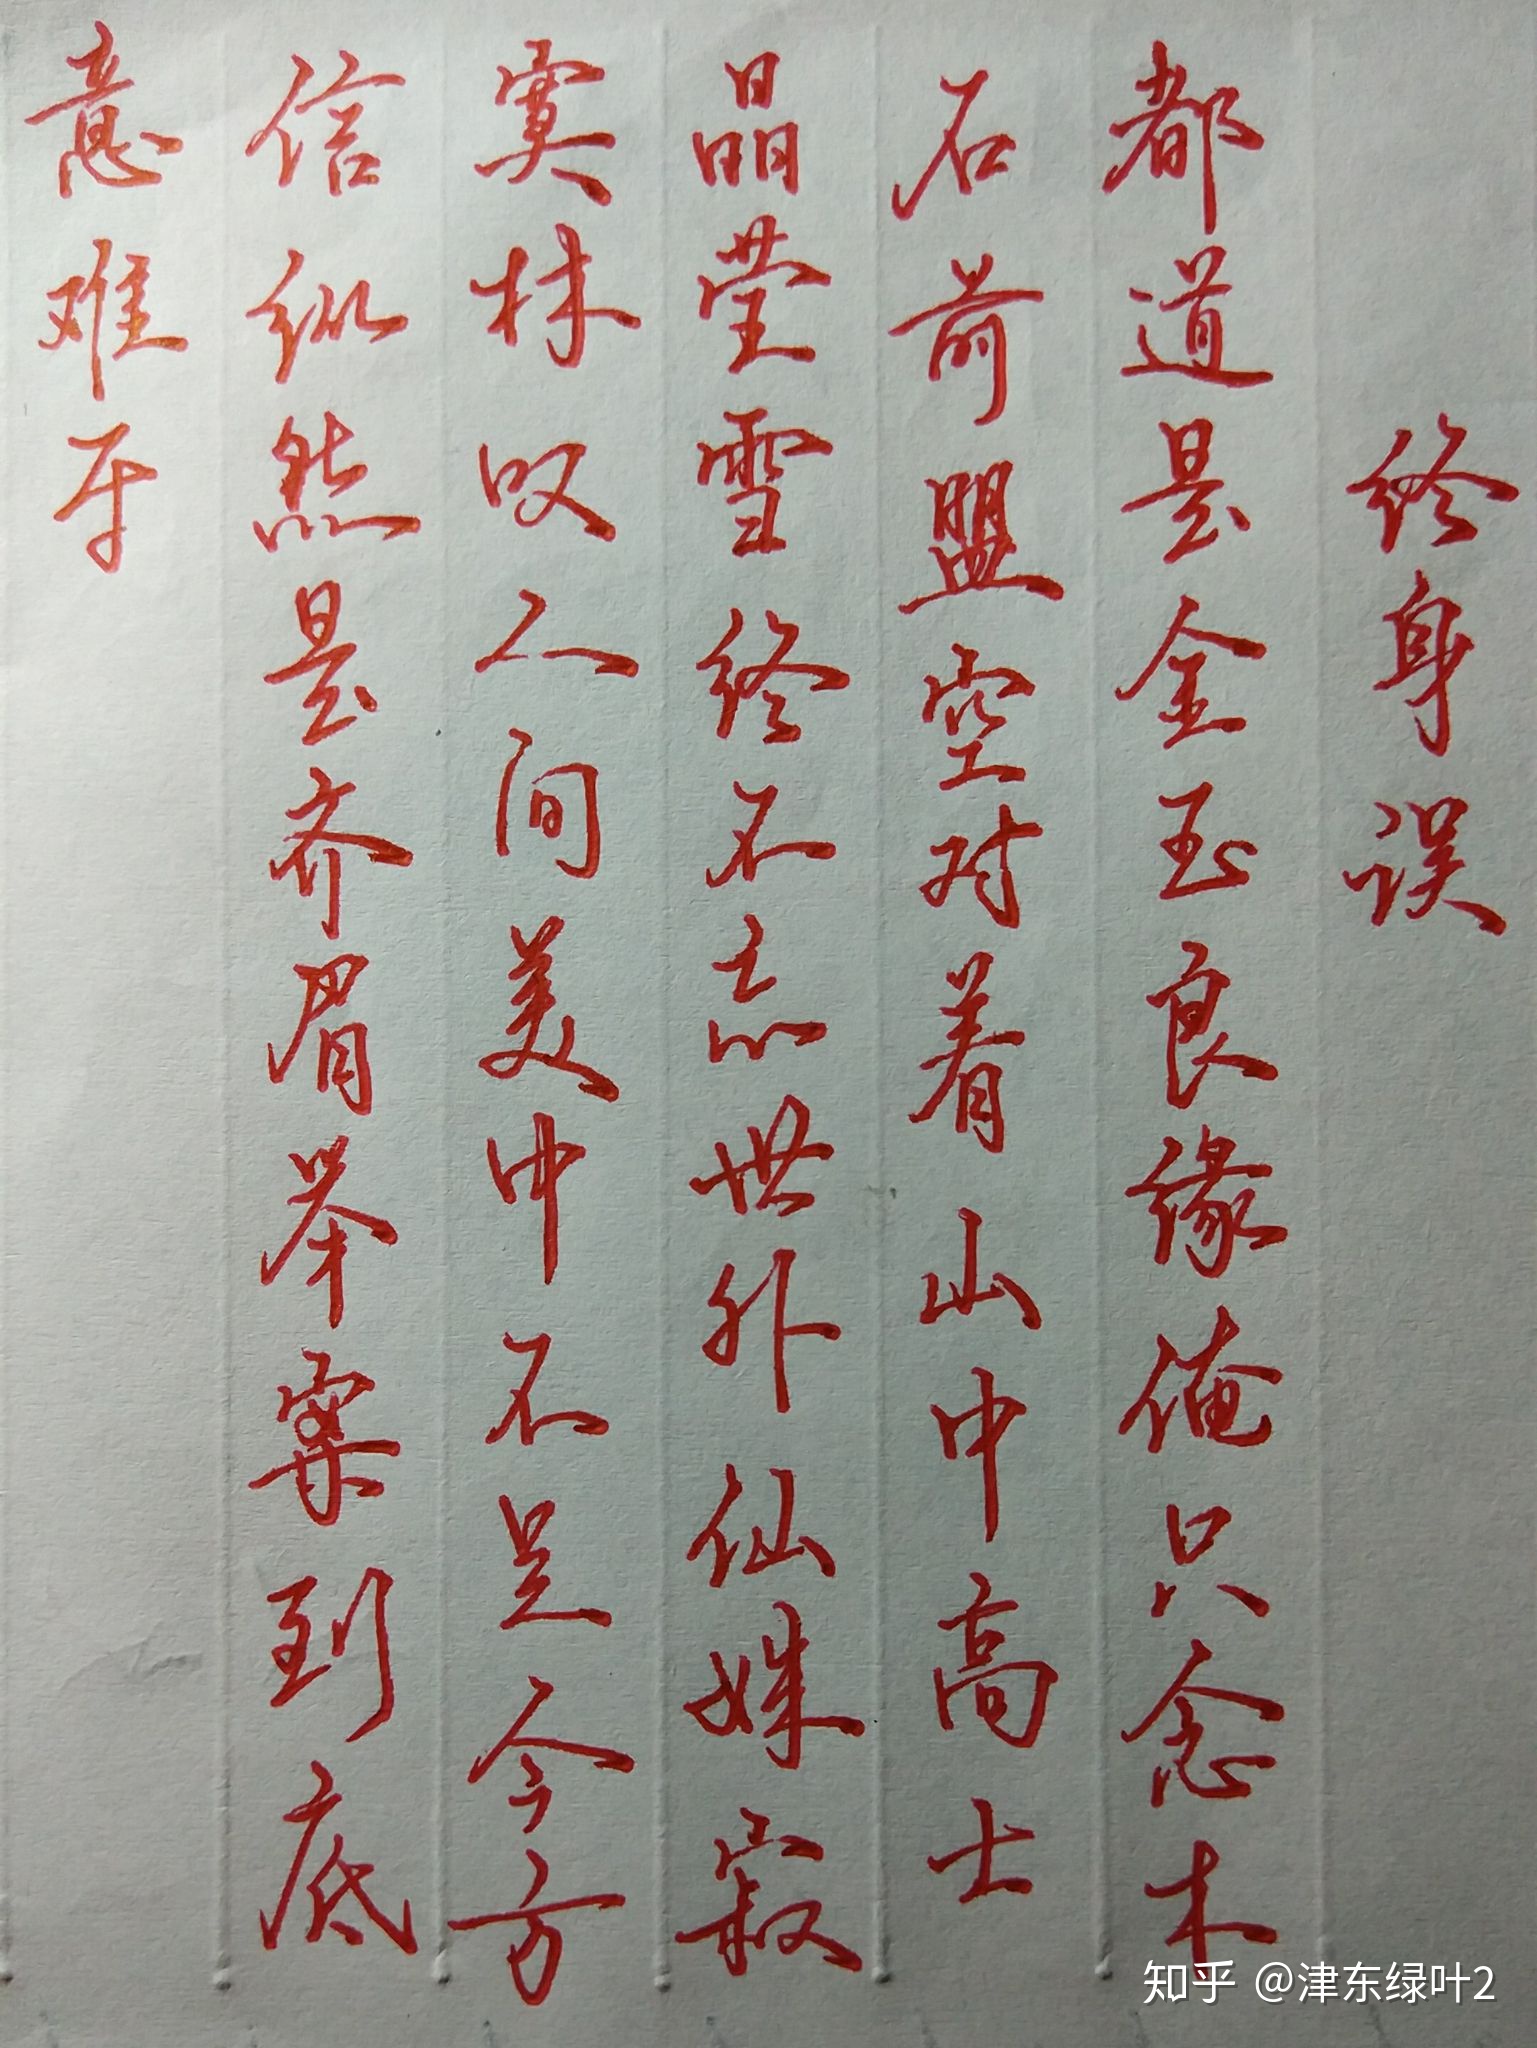 终身误
都道是金玉良缘俺只念木
石前盟空对着山中高士
晶莹雪终不忘世外仙姝寂
寞林叹人间美中不足今方
信纵然是齐眉举案到底
意难平
知乎 @津东绿叶2